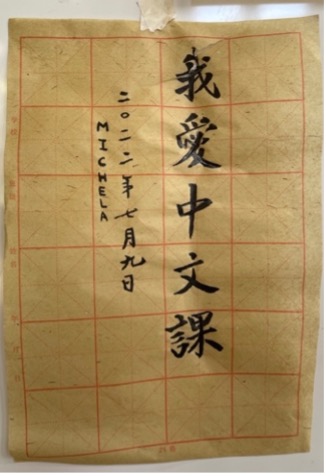 我愛中文課
二〇二二年七月九日
MICHELA